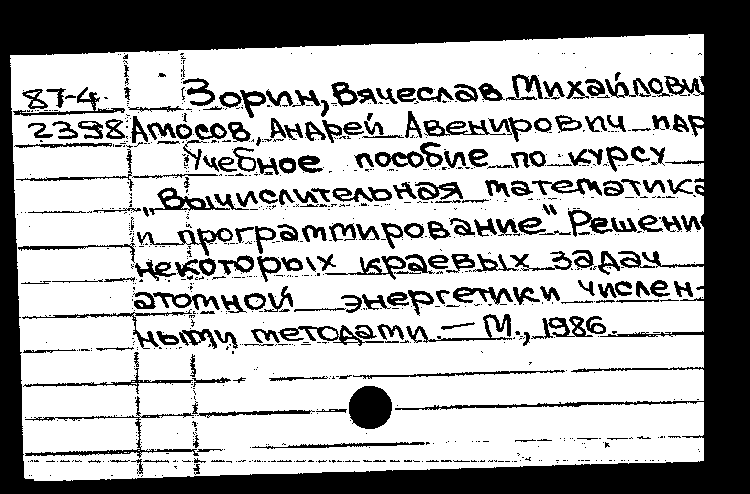 87-4 Зорин, Вячеслав Михайлови
2398 Амосов, Андрей Авенирович пар
Учебное пособие по курсу
„Вычислительная математика
и программирование" Решени
некоторых краевых задач
атомной энергетики числен-
ными методами. — М., 1986.